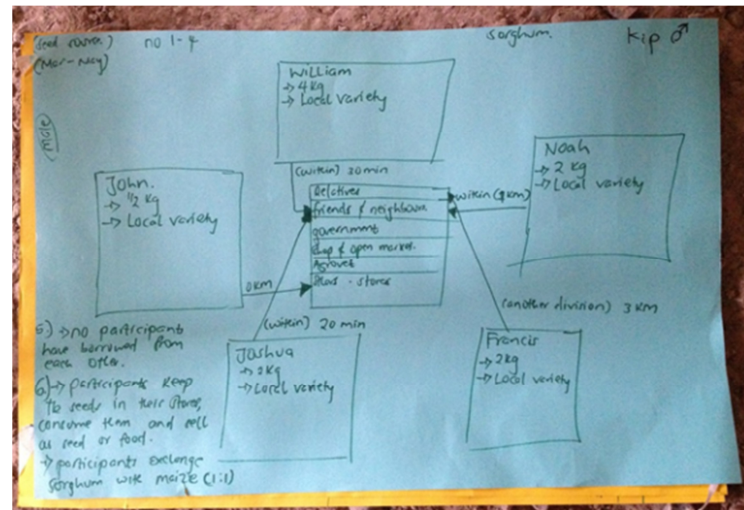 (seed source.) no 1-4 sorghum. Kip ♂
(Mar-May)
male
William
→ 4 kg
→ Local variety
John.
→ 1/2 kg
→ Local variety
Noah
→ 2 kg
→ Local variety
(within) 30 min
within (km)
Relatives
friends & neighbours
government
shop & open market.
Agrovet
- stores
0 KM
(within) 20 min
(another division) 3 KM
Joshua
→ 2kg
→ Local variety
Francis
→ 2kg
→ Local variety
5.) → no participants
have borrowed from
each other.
6) → participants keep
the seeds in their stores,
consume them and sell
as seed or food.
→ participants exchange
sorghum with maize (1:1)